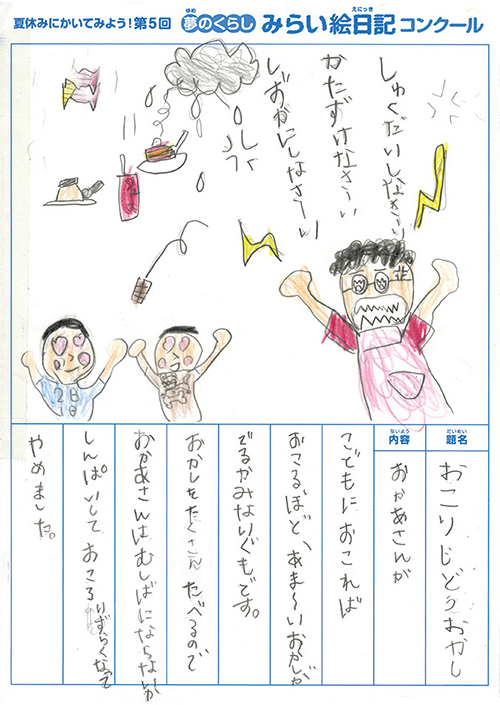 夏休みにかいてみよう!第5回 夢のくらし みらい絵日記コンクール
ゆめ
えにっき
しゅくだいしなさーい
かたずけなさーい
しずかにしなさーい
だいめい
題名
おこりじどうおかし
ないよう
内容
おかあさんが
こどもにおこれば
おこるほど、あま〜いおかしが
でるかみないぐもです。
おかしをたくさんたべるので
おかあさんはむしばにならないか
しんぱいしておこる
いずらくなって
やめました。